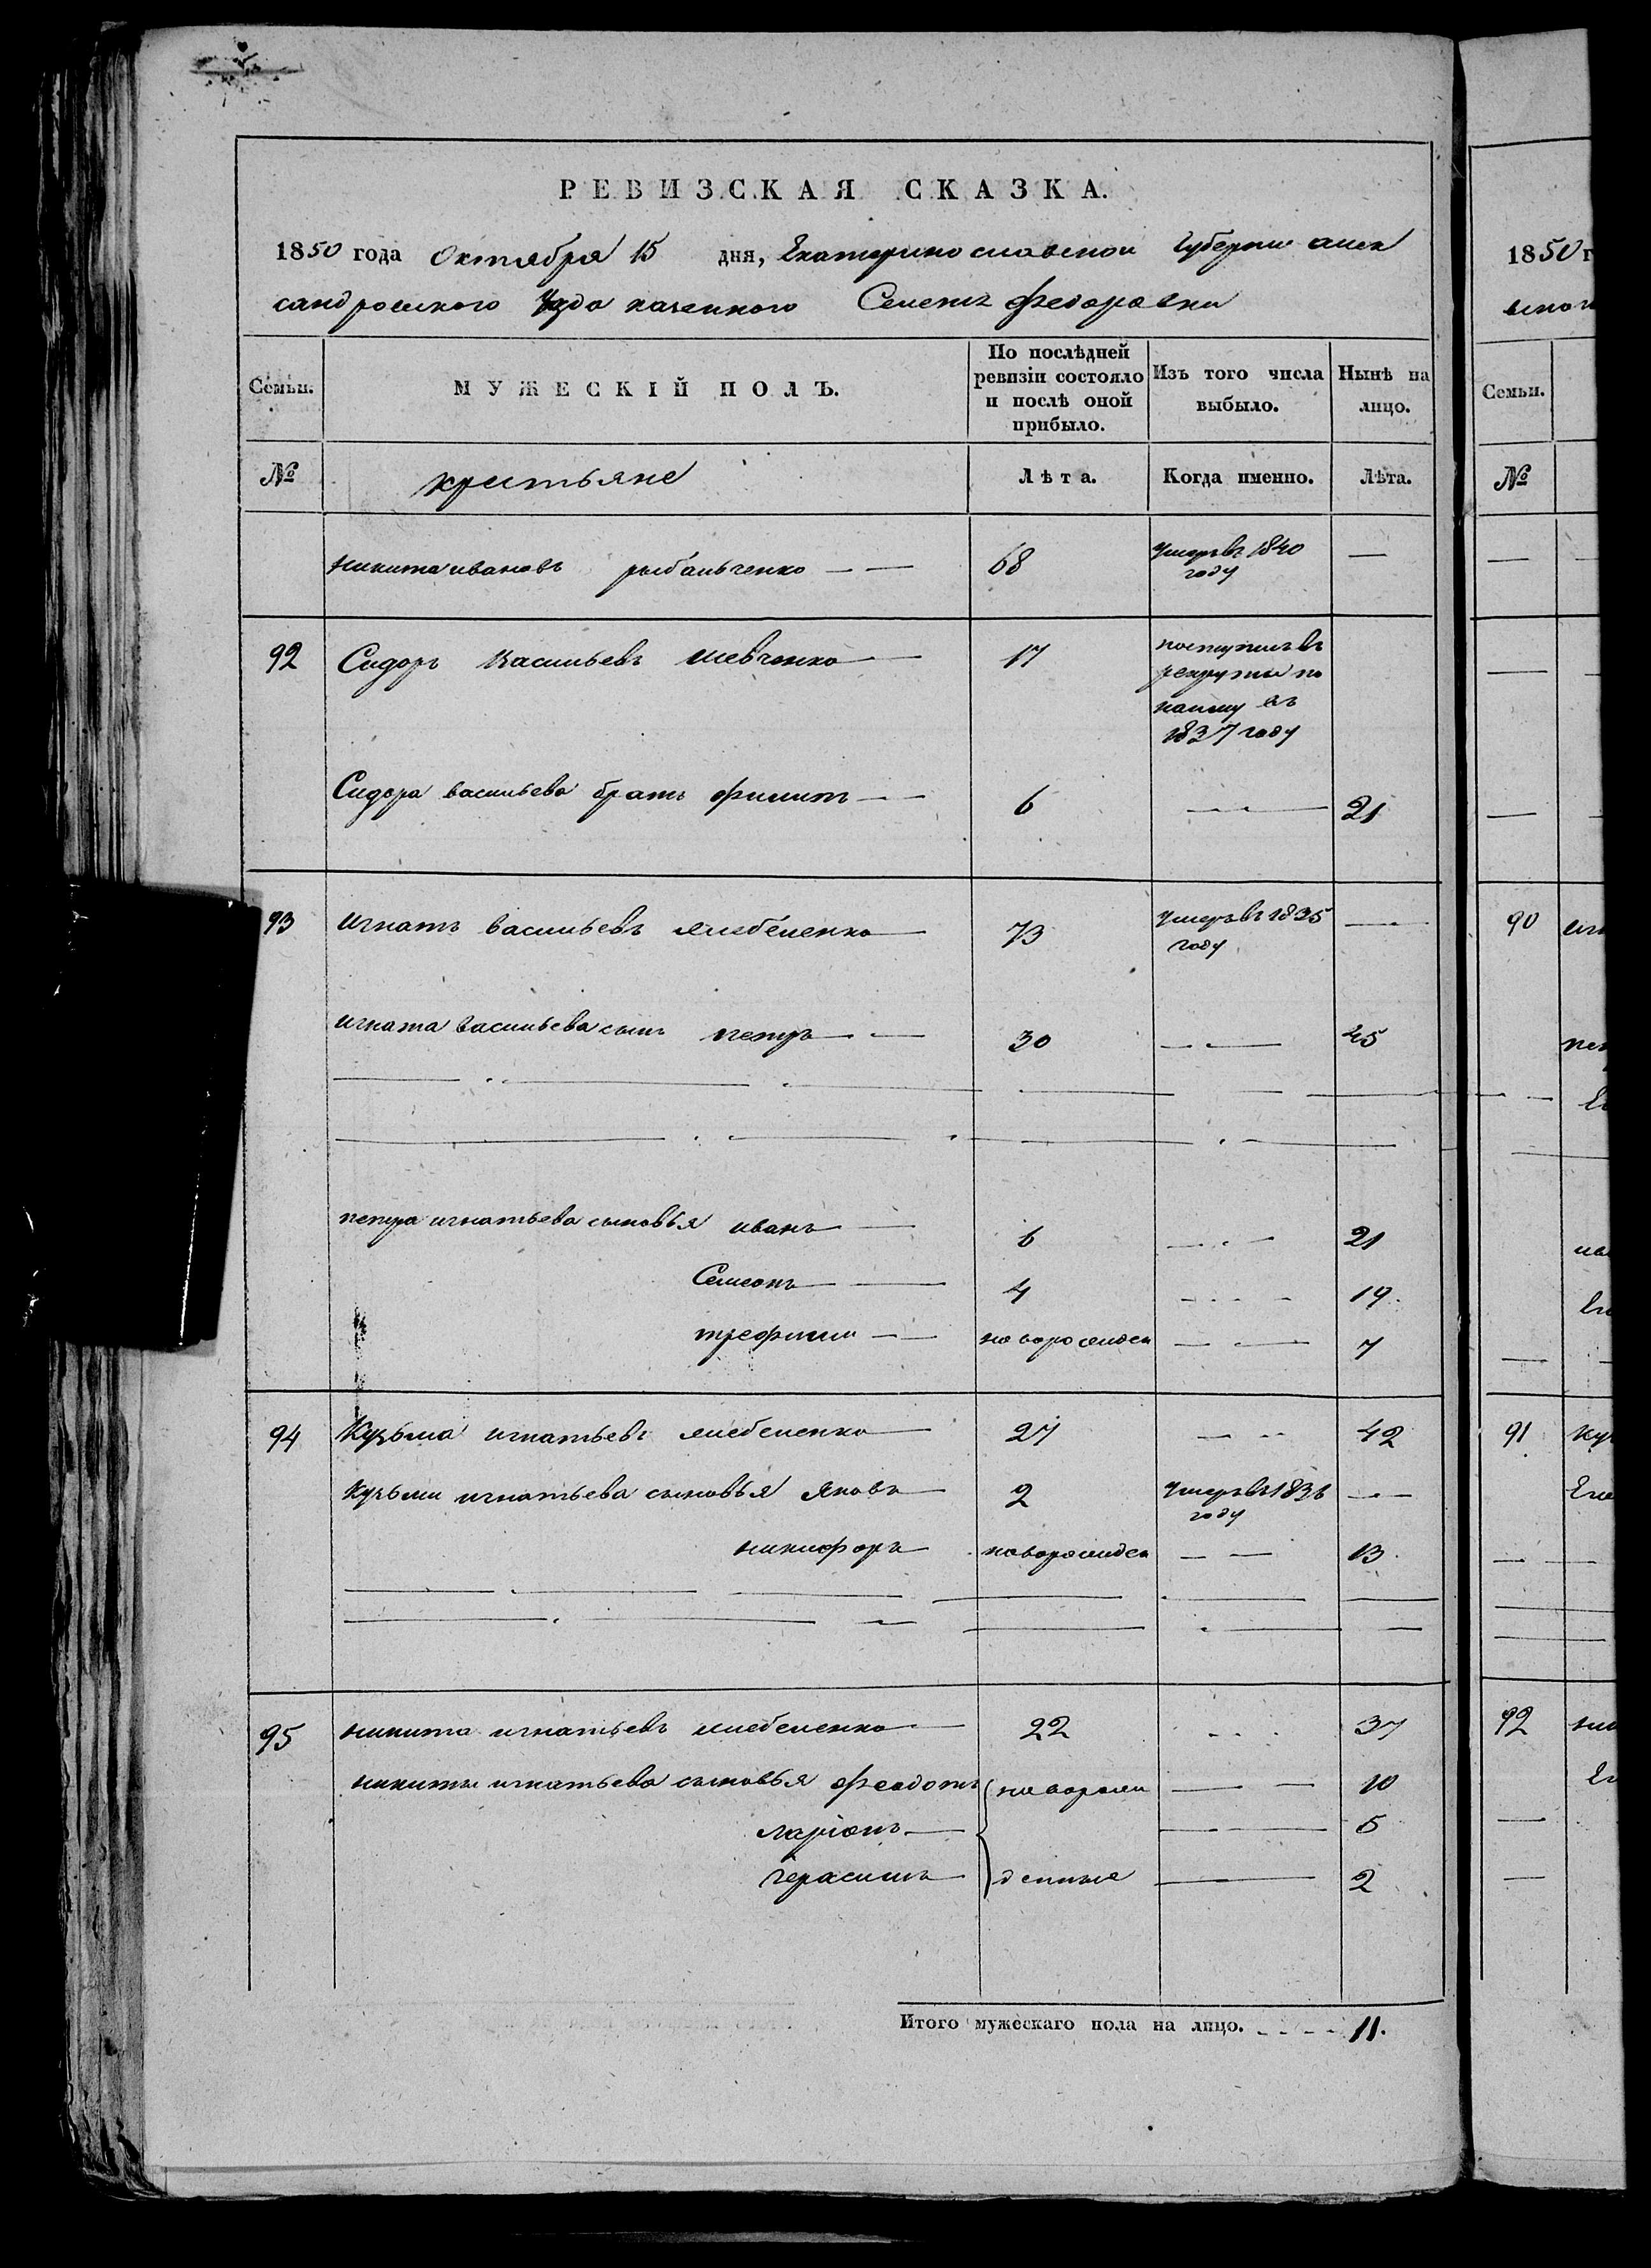 РЕВИЗСКАЯ СКАЗКА.
1850 года Октября 15 дня, Екатеринославской Губернии алек
сандровского Уезда казенного Селенiя Федоровки
Семьи.
МУЖЕСКІЙ ПОЛЪ.
По послѣдней
ревизіи состояло
и послѣ оной
прибыло.
Изъ того числа
выбыло.
Нынѣ на
лицо.
№ крестьяне Лѣта. Когда именно. Лѣта.
никита ивановъ рыбальченко — — 68 умеръ въ 1840 —
году
92 Сидоръ Васильевъ шевченко — 17 поступилъ въ
рекруты по
найму въ
1837 году
Сидора васильева братъ филипъ — — 6 — — 21
93 игнатъ васильевъ — 73 умеръ въ 1835 —
году
игната васильева сынъ петръ — — 30 — — 45
петра игнатьева сыновья иванъ — 6 — — 21
Семенъ — — 4 — — 19
трофимъ — — новорожден — — 7
94 Кузьма игнатьевъ — 27 — — 42
кузьмы игнатьева сыновья яковъ — 2 умеръ въ 1836 —
году
никифоръ — новорожден — — 13
95 никита игнатьевъ — 22 — 37
никиты игнатьева сыновья Феодотъ новорож — — 10
ларіонъ — — — 5
герасимъ — денные — 2
Итого мужескаго пола на лицо. - - - - 11.
1850 г
Семьи.
№
90
91
92